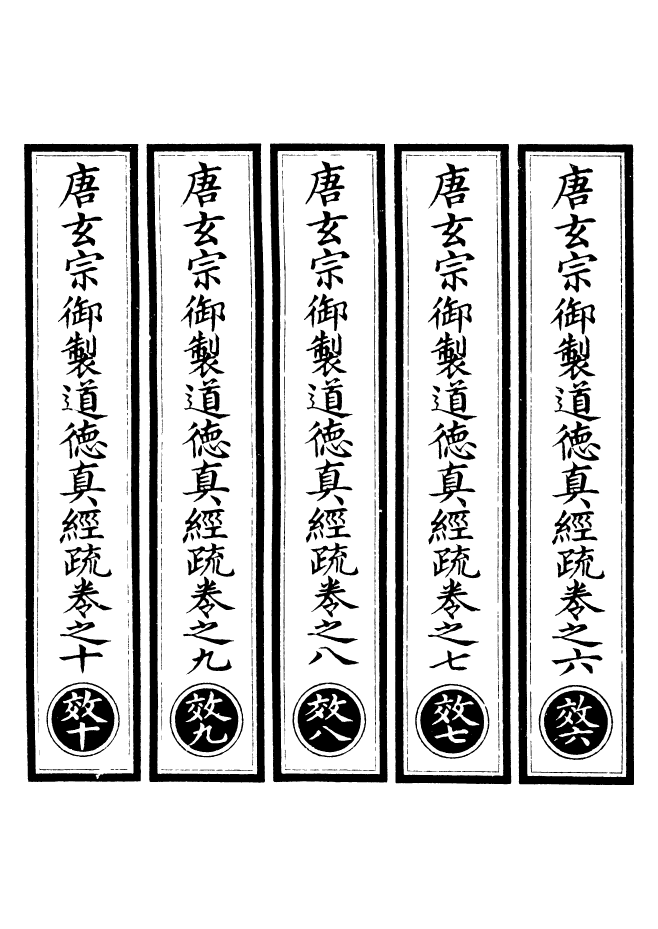 唐玄宗御製道德真經疏卷之六
效六
唐玄宗御製道德真經疏卷之七
效七
唐玄宗御製道德真經疏卷之八
效八
唐玄宗御製道德真經疏卷之九
效九
唐玄宗御製道德真經疏卷之十
效十